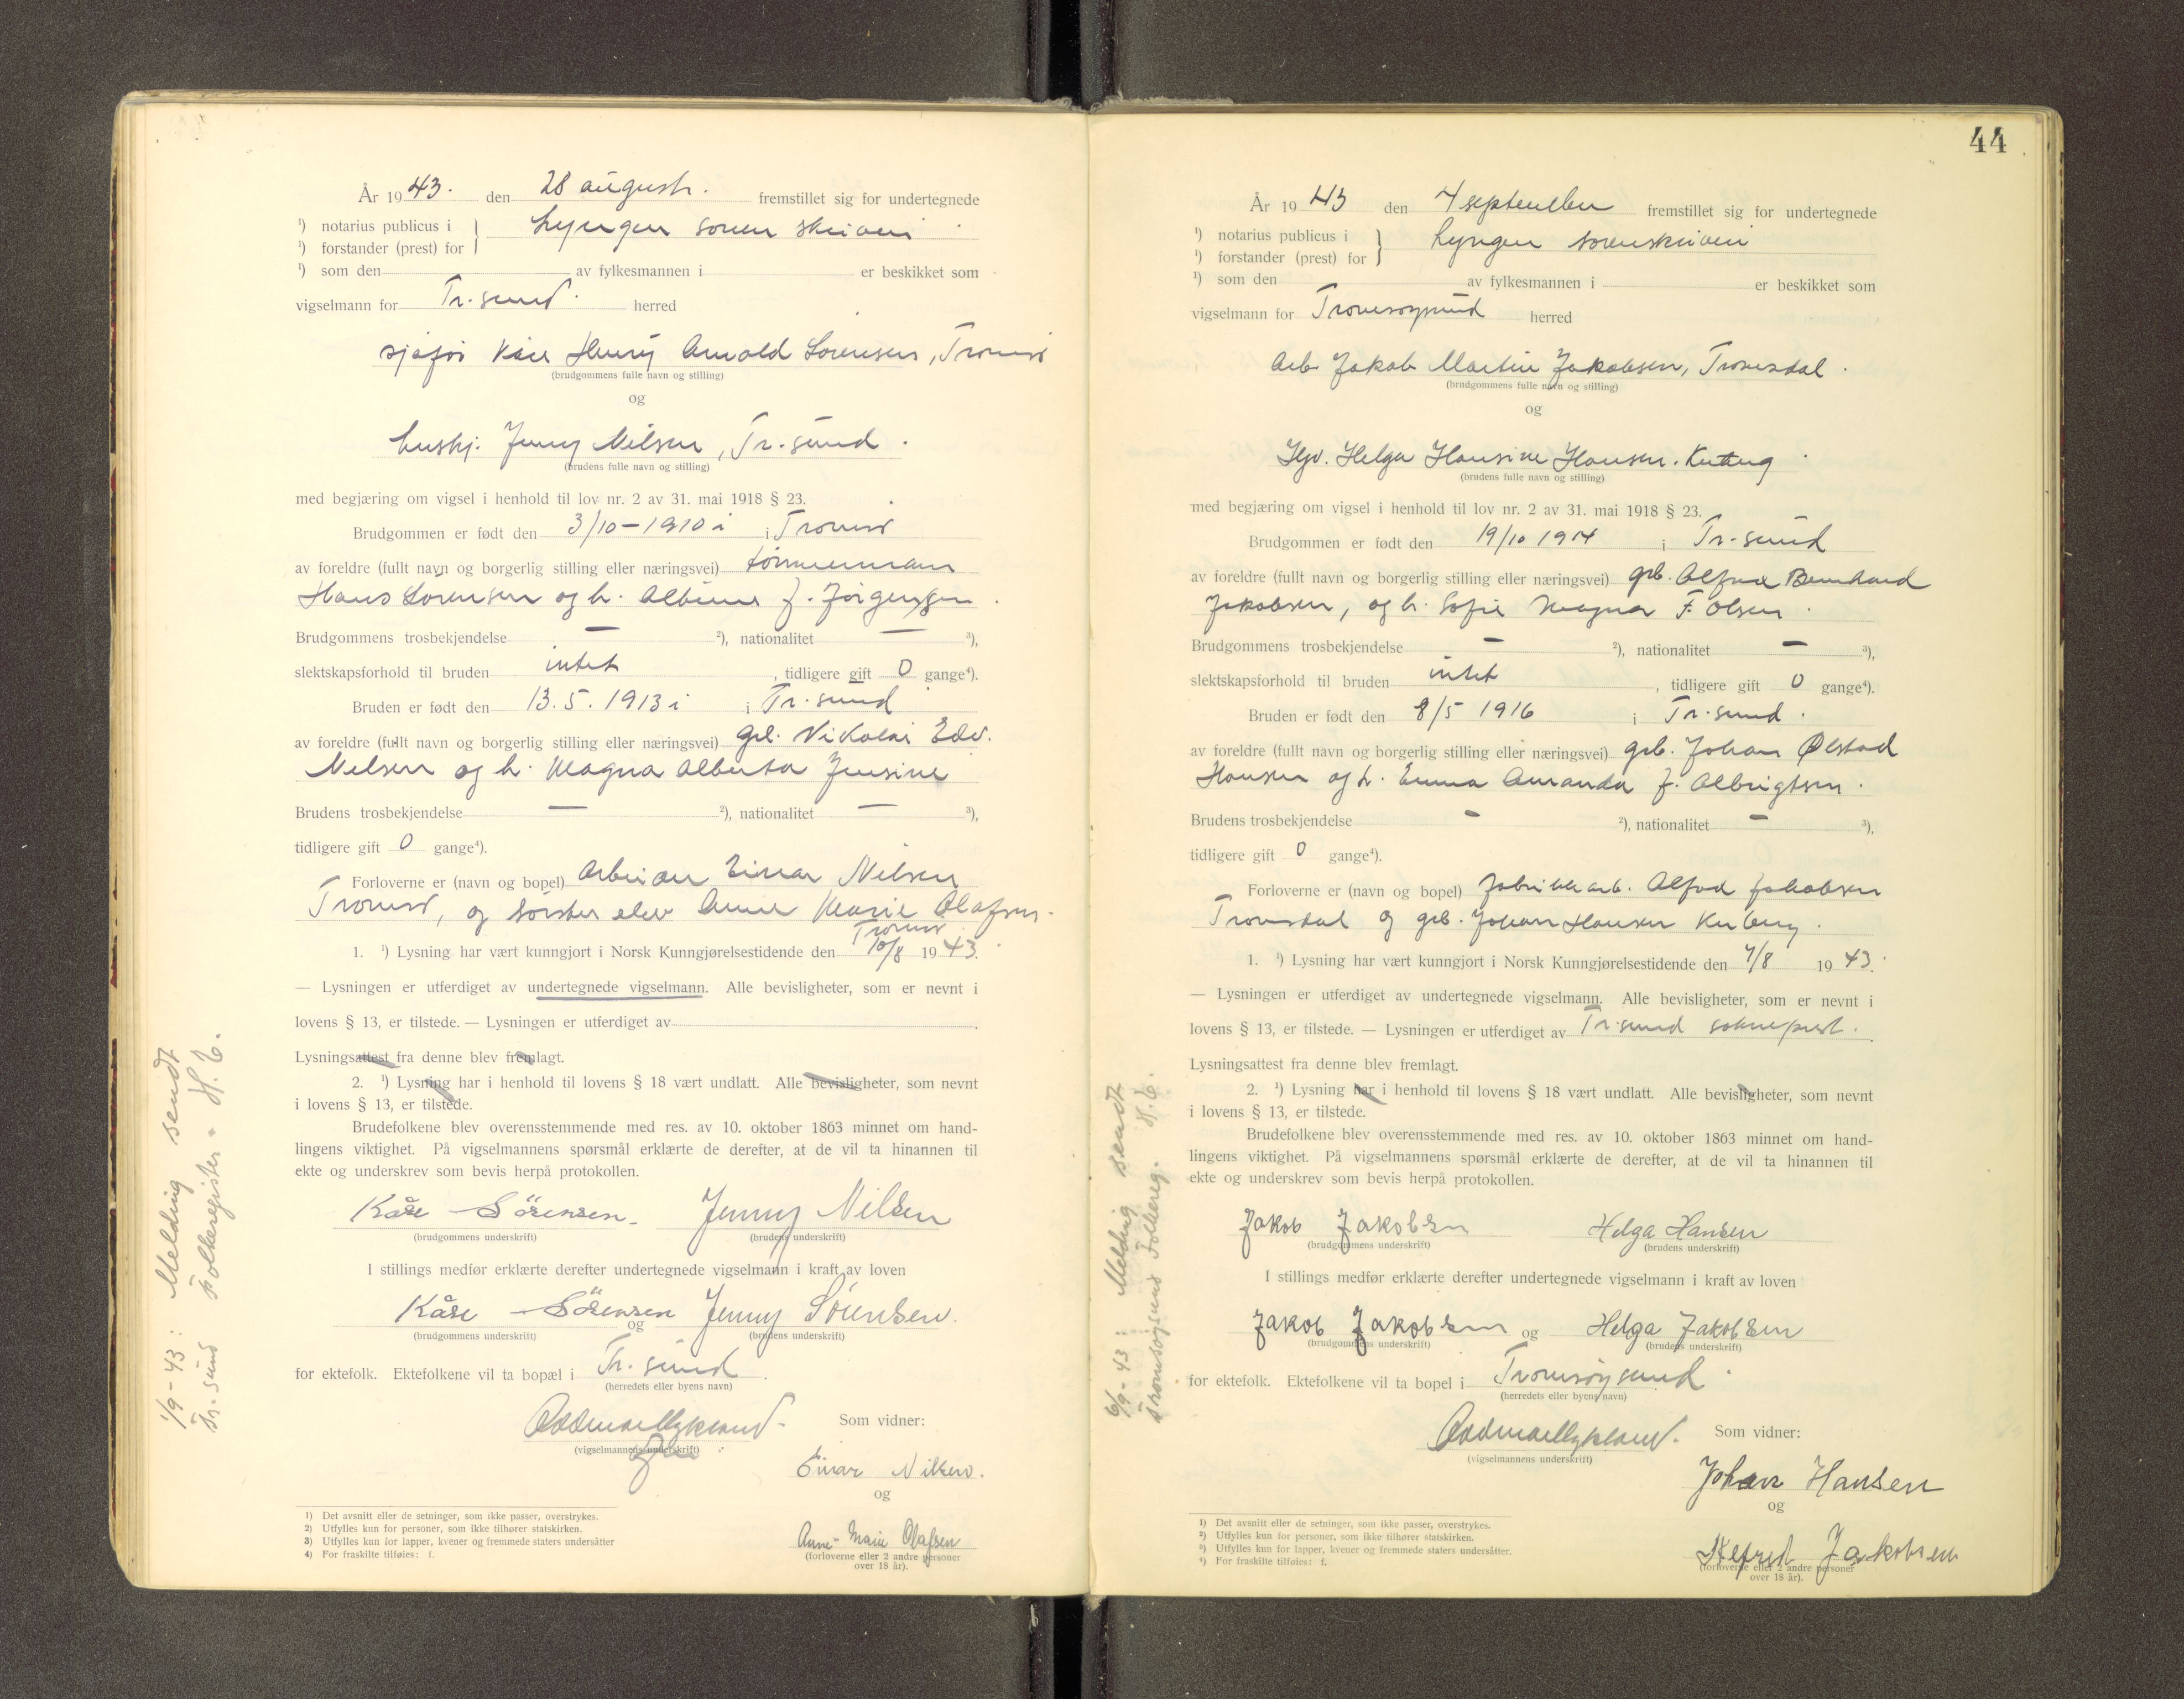 År 1943. den 28 august. fremstillet sig for undertegnede
¹) notarius publicus i } Lyngen sorenskriveri
¹) forstander (prest) for
¹) som den av fylkesmannen i er beskikket som
vigselmann for Tr.sund. herred
sjåfør Kåre Henry Arnold Sørensen, Tromsø
(brudgommens fulle navn og stilling)
og
hushj. Jenny Nilsen, Tr.sund.
(brudens fulle navn og stilling)
med begjæring om vigsel i henhold til lov nr. 2 av 31. mai 1918 § 23.
Brudgommen er født den 3/10-1910 i i Tromsø
av foreldre (fullt navn og borgerlig stilling eller næringsvei) tømmermann
Hans Sørensen og h. Albine f. Jørgensen.
Brudgommens trosbekjendelse — ²), nationalitet — ³),
slektskapsforhold til bruden intet, tidligere gift 0 gange⁴).
Bruden er født den 13.5.1913 i i Tr.sund
av foreldre (fullt navn og borgerlig stilling eller næringsvei) grb. Nikolai Edv.
Nilsen og h. Magna Alberta Jensine
Brudens trosbekjendelse — ²), nationalitet — ³),
tidligere gift 0 gange⁴).
Forloverne er (navn og bopel) Einar Nilsen
Tromsø, og søster elev Anne Marie Olafsen.
Tromsø
1. ¹) Lysning har vært kunngjort i Norsk Kunngjørelsestidende den 10/8 1943.
— Lysningen er utferdiget av undertegnede vigselmann. Alle bevisligheter, som er nevnt i
lovens § 13, er tilstede. — Lysningen er utferdiget av
Lysningsattest fra denne blev fremlagt.
2. ¹) Lysning har i henhold til lovens § 18 vært undlatt. Alle bevisligheter, som nevnt
i lovens § 13, er tilstede.
Brudefolkene blev overensstemmende med res. av 10. oktober 1863 minnet om hand-
lingens viktighet. På vigselmannens spørsmål erklærte de derefter, at de vil ta hinannen til
ekte og underskrev som bevis herpå protokollen.
Kåre Sörensen. Jenny Nilsen
(brudgommens underskrift) (brudens underskrift)
I stillings medfør erklærte derefter undertegnede vigselmann i kraft av loven
Kåre Sörensen og Jenny Sörensen.
(brudgommens underskrift) (brudens underskrift)
for ektefolk. Ektefolkene vil ta bopæl i Tr.sund.
(herredets eller byens navn)
Som vidner:
(vigselmannens underskrift)
Einar Nilsen.
og
Anne-Marie Olafsen
(forloverne eller 2 andre personer
over 18 år).
1) Det avsnitt eller de setninger, som ikke passer, overstrykes.
2) Utfylles kun for personer, som ikke tilhører statskirken.
3) Utfylles kun for lapper, kvener og fremmede staters undersåtter
4) For fraskilte tilføies: f.
1/9-43: Melding sendt
Tr.sund Folkeregister.
44
År 1943 den 4 september fremstillet sig for undertegnede
¹) notarius publicus i } Lyngen sorenskriveri
¹) forstander (prest) for
¹) som den av fylkesmannen i er beskikket som
vigselmann for Tromsøysund herred
Arb. Jakob Martin Jakobsen, Tromsdal.
(brudgommens fulle navn og stilling)
og
Helga Hansine Hansen.
(brudens fulle navn og stilling)
med begjæring om vigsel i henhold til lov nr. 2 av 31. mai 1918 § 23.
Brudgommen er født den 19/10 1914 i Tr.sund
av foreldre (fullt navn og borgerlig stilling eller næringsvei) grb. Alfred Bernhard
Jakobsen, og h. Sofie Magna F. Olsen.
Brudgommens trosbekjendelse — ²), nationalitet — ³),
slektskapsforhold til bruden intet, tidligere gift 0 gange⁴).
Bruden er født den 8/5 1916 i Tr.sund.
av foreldre (fullt navn og borgerlig stilling eller næringsvei) grb. Johan Ølstad
Hansen og h. Emma Amanda f. Albrigtsen.
Brudens trosbekjendelse — ²), nationalitet — ³),
tidligere gift 0 gange⁴).
Forloverne er (navn og bopel) fabrikkarb. Alfred Jakobsen
Tromsdal og grb. Johan Hansen
1. ¹) Lysning har vært kunngjort i Norsk Kunngjørelsestidende den 7/8 1943.
— Lysningen er utferdiget av undertegnede vigselmann. Alle bevisligheter, som er nevnt i
lovens § 13, er tilstede. — Lysningen er utferdiget av Tr.sund sokneprest.
Lysningsattest fra denne blev fremlagt.
2. ¹) Lysning har i henhold til lovens § 18 vært undlatt. Alle bevisligheter, som nevnt
i lovens § 13, er tilstede.
Brudefolkene blev overensstemmende med res. av 10. oktober 1863 minnet om hand-
lingens viktighet. På vigselmannens spørsmål erklærte de derefter, at de vil ta hinannen til
ekte og underskrev som bevis herpå protokollen.
Jakob Jakobsen Helga Hansen
(brudgommens underskrift) (brudens underskrift)
I stillings medfør erklærte derefter undertegnede vigselmann i kraft av loven
Jakob Jakobsen og Helga Jakobsen
(brudgommens underskrift) (brudens underskrift)
for ektefolk. Ektefolkene vil ta bopel i Tromsøysund.
(herredets eller byens navn)
Som vidner:
(vigselmannens underskrift)
Johan Hansen
og
Jakobsen
(forloverne eller 2 andre personer
over 18 år).
1) Det avsnitt eller de setninger, som ikke passer, overstrykes.
2) Utfylles kun for personer, som ikke tilhører statskirken.
3) Utfylles kun for lapper, kvener og fremmede staters undersåtter.
4) For fraskilte tilføies: f.
6/9-43: Melding sendt
Tromsøysund Folkereg.